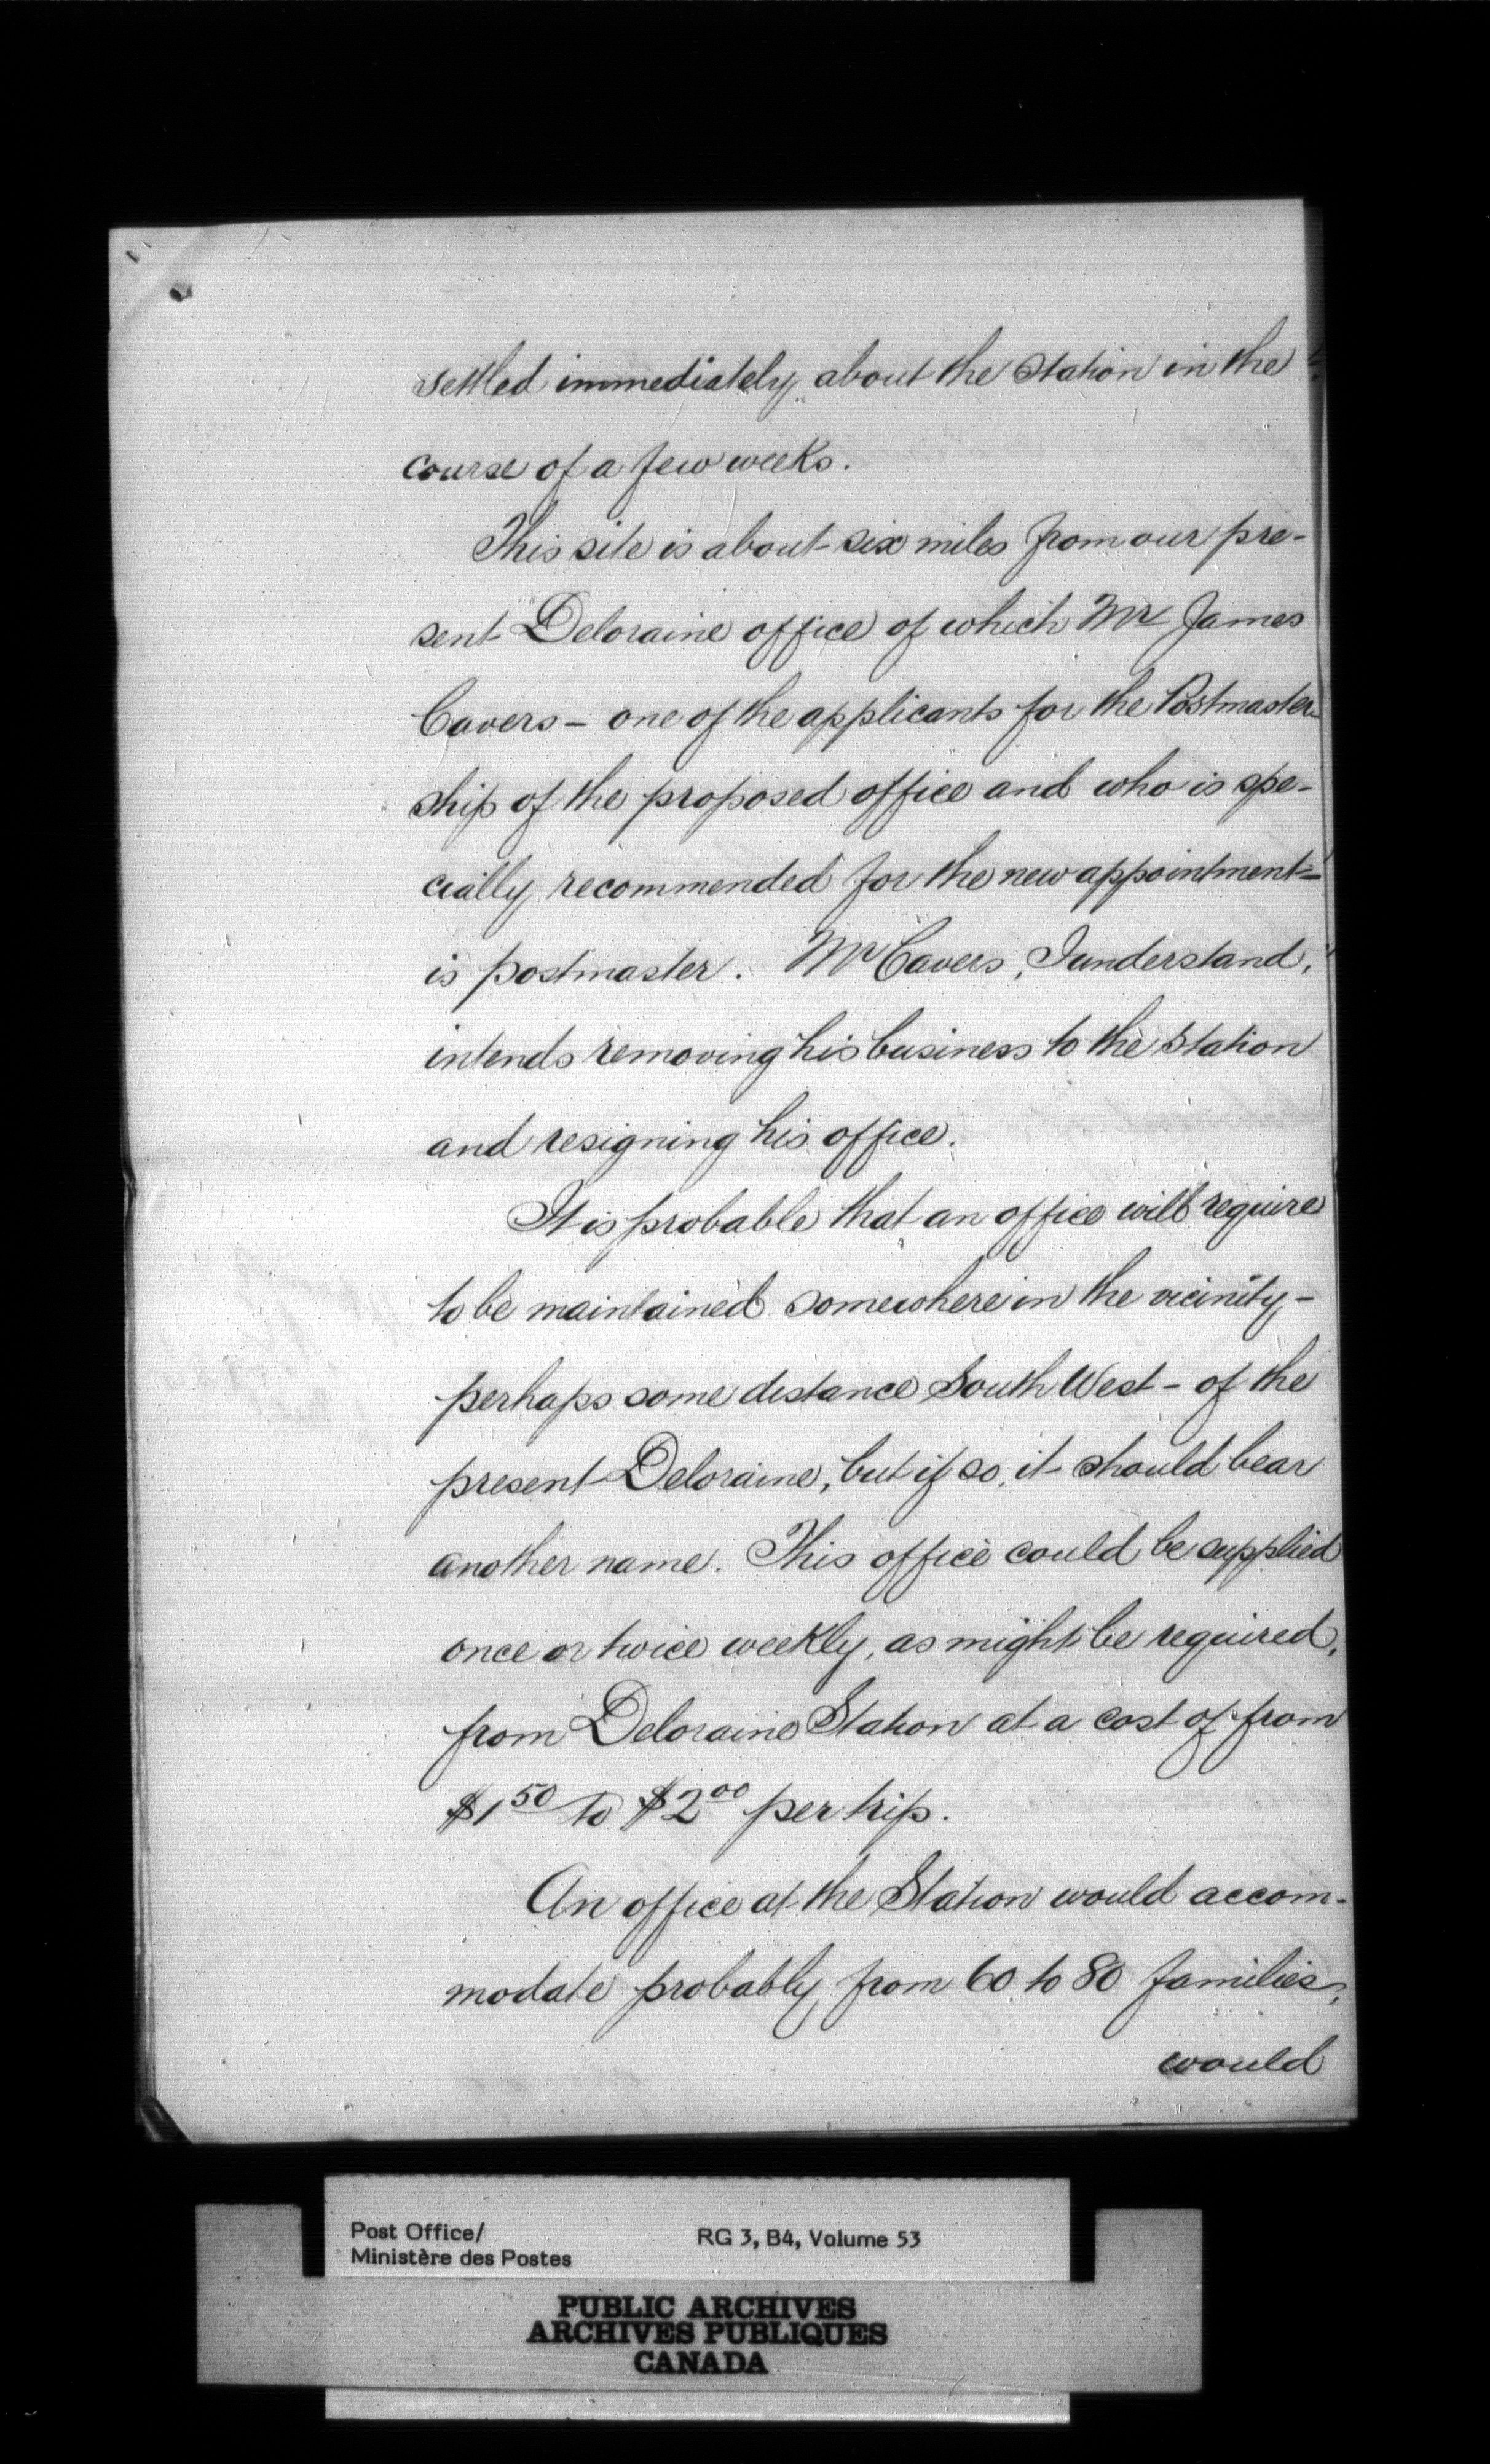 settled immediately about the Station in the
course of a few weeks.
This site is about six miles from our pre-
sent Deloraine office of which Mr James
Cavers - one of the applicants for the Postmaster-
ship of the proposed office and who is spe-
cially recommended for the new appointment -
is postmaster. Mr Cavers, I understand,
intends removing his business to the Station
and resigning his office.
It is probable that an office will require
to be maintained somewhere in the vicinity -
perhaps some distance South West - of the
present Deloraine, but if so, it should bear
another name. This office could be supplied
once or twice weekly, as might be required,
from Deloraine Station at a cost of from
$1.50 to $2.00 per trip.
An office at the Station would accom-
modate probably from 60 to 80 families,
would
Post Office/ RG 3, B4, Volume 53
Ministère des Postes
PUBLIC ARCHIVES
ARCHIVES PUBLIQUES
CANADA